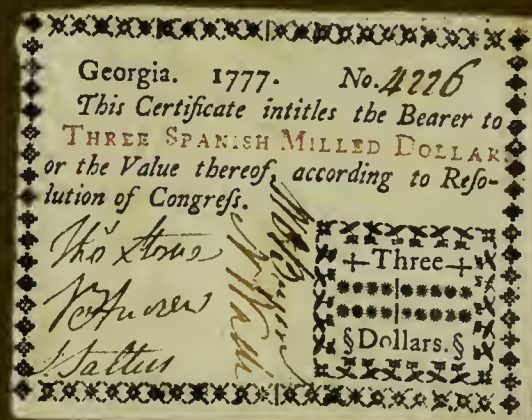 Georgia. 1777. No. 4226
This Certificate intitles the Bearer to
THREE SPANISH MILLED DOLLARS
or the Value thereof, according to Reſo-
lution of Congreſs.
Thos Stone
Wm Few
Three
§Dollars.§